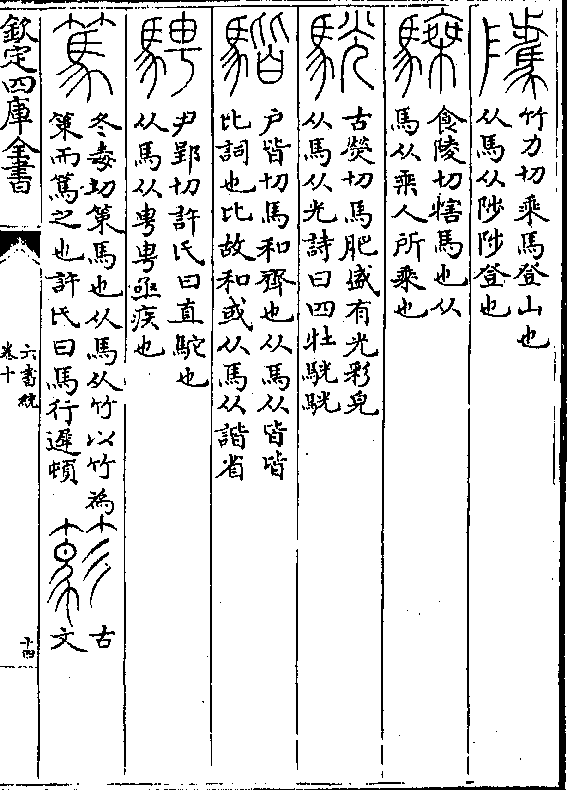 騭
竹力切乘馬登山也
从馬从陟陟登也
騬
食陵切犗馬也从
馬从乘人所乘也
駫
古熒切馬肥盛有光彩皃
从馬从光詩曰四牡駫駫
戸皆切馬和齊也从馬从皆皆
比詞也比故和或从馬从諧省
騁
尹郢切許氏曰直駝也
从馬从甹甹亟疾也
篤
冬毒切策馬也从馬从竹以竹為
策而篤之也許氏曰馬行遲頓
古
文
欽定四庫全書
六書統
卷十
十四